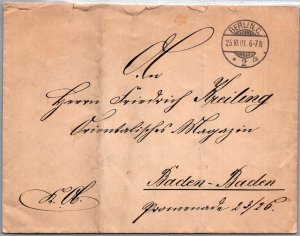 BERLIN, C.
25.10.01. 6-7N
* 2 a
An
Herrn Friedrich Kreiling
Orientalisches Magazin
Baden-Baden
Promenade 25/26.